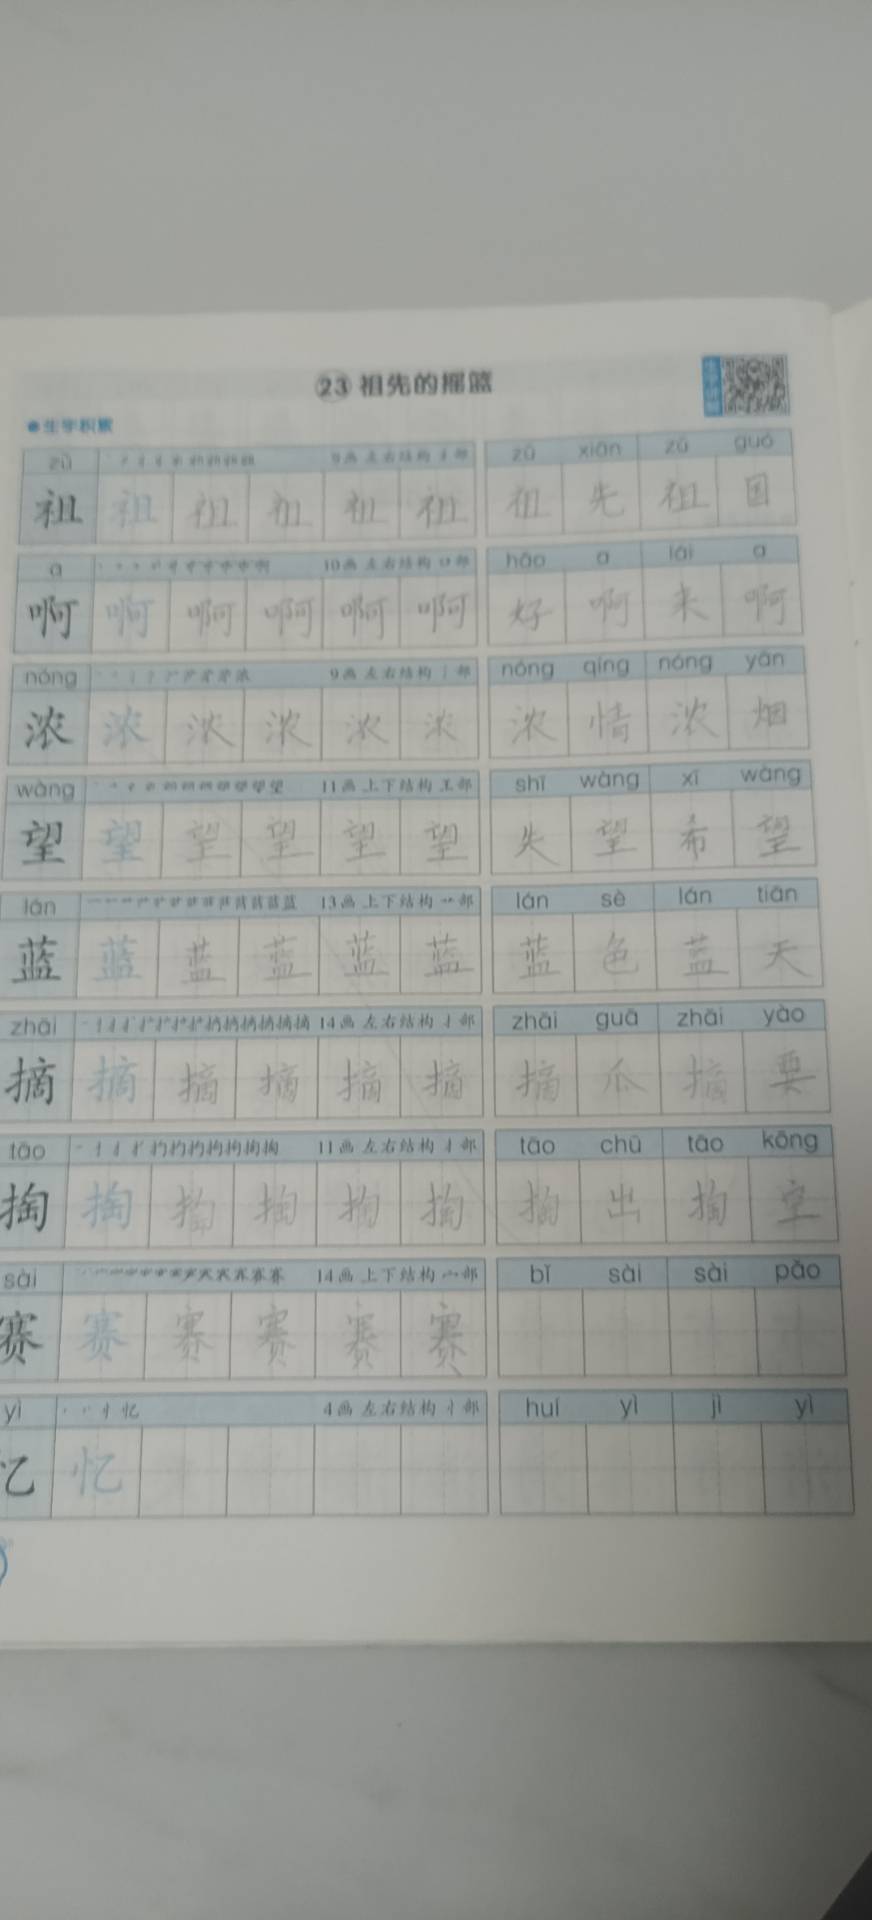 23 祖先的摇篮
生字积累
zǔ 9画 左右结构 礻部 zǔ xiān zǔ guó
祖 祖 祖 祖 祖 祖 祖 先 祖 国
a 10画 左右结构 口部 hǎo a lái a
啊 啊 啊 啊 啊 啊 好 啊 来 啊
nóng 9画 左右结构 氵部 nóng qíng nóng yān
浓 浓 浓 浓 浓 浓 浓 情 浓 烟
wàng 11画 上下结构 王部 shī wàng xī wàng
望 望 望 望 望 望 失 望 希 望
lán 13画 上下结构 艹部 lán sè lán tiān
蓝 蓝 蓝 蓝 蓝 蓝 蓝 色 蓝 天
zhāi 14画 左右结构 扌部 zhāi guā zhāi yào
摘 摘 摘 摘 摘 摘 摘 瓜 摘 要
tāo 11画 左右结构 扌部 tāo chū tāo kōng
掏 掏 掏 掏 掏 掏 掏 出 掏 空
sài 14画 上下结构 宀部 bǐ sài sài pǎo
赛 赛 赛 赛 赛 赛
yì 4画 左右结构 忄部 huí yì jì yì
忆 忆